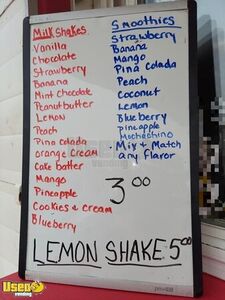 Milkshakes
Vanilla
Chocolate
Strawberry
Banana
Mint Chocolate
Peanut butter
Lemon
Peach
Pina colada
orange Cream
Cake batter
Mango
Pineapple
Cookies & cream
Blueberry
Smoothies
Strawberry
Banana
Mango
Pina Colada
Peach
Coconut
Lemon
Blueberry
pineapple
Mochachino
Mix + Match
any flavor
3.00
LEMON SHAKE 5.00
Used
vending